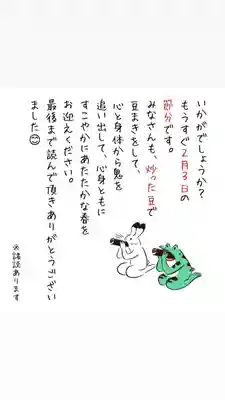 いかがでしょうか?
もうすぐ2月3日の
節分です。
みなさんも、炒った豆で
豆まきをして、
心と身体から鬼を
追い出して、心身ともに
すこやかにあたたかな春を
お迎えください。
最後まで読んで頂きありがとうござい
ました😊
※諸説あります